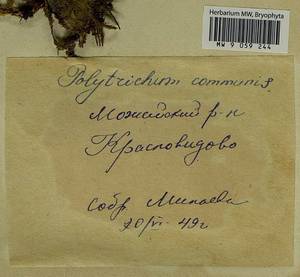 Herbarium MW, Bryophyta
MW 9 059 244
Polytrichum communis.
Можайский р-н
Красновидово
Собр. Минаева
20/VI 49г